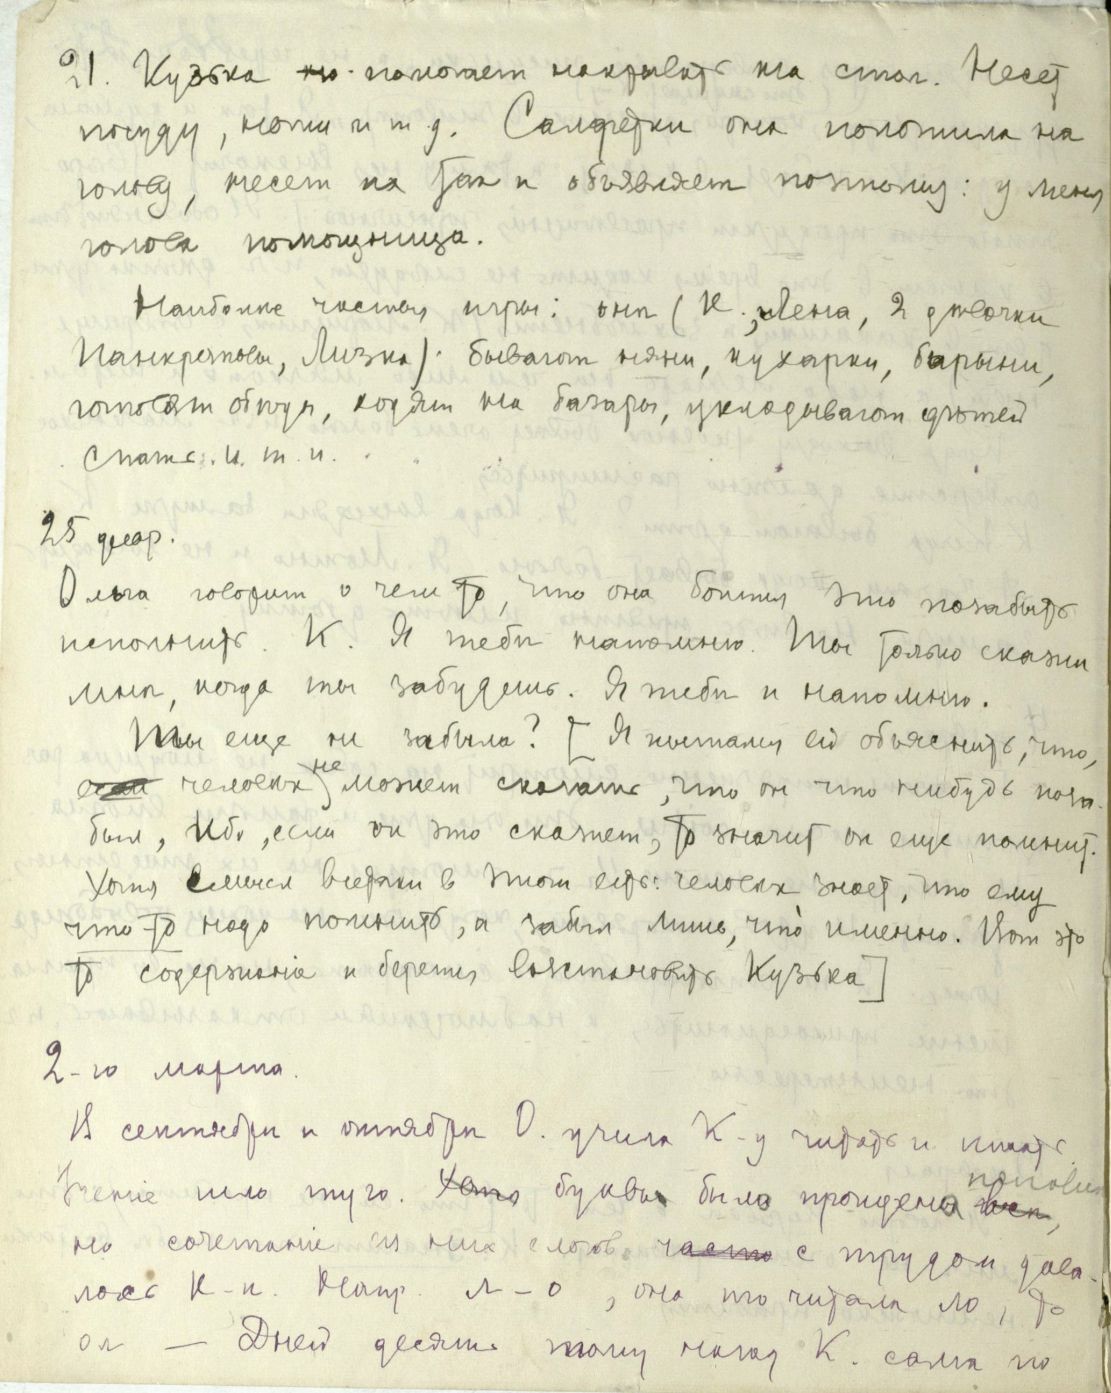 21. Кузька помогает накрывать на стол. Несет
посуду, ножи и т д. Салфетки она положила на
голову, несет их так и объявляет поэтому: у меня
голова помощница.
Наиболѣе частыя игры: онѣ (К., Лена, 2 дѣвочки
Панкратовы, Лизка) бывают няни, кухарки, барыни,
готовят обѣды, ходят на базары, укладывают дѣтей
спать. и. т. п.
25 февр.
Ольга говорит о чем то, что она боится это позабыть
исполнить. К. Я тебѣ напомню. Ты только скажи
мнѣ, когда ты забудешь. Я тебѣ и напомню.
Ты еще не забыла? [Я пытался ей объяснить, что,
человѣк не может сказать, что он что нибудь поза-
был, ибо, если он это скажет, то значит он еще помнит.
Хотя смысл всетаки в этом есть: человѣк знает, что ему
что-то надо помнить, а забыл лишь, что именно. Вот это
то содержаніе и берется возстановить Кузька]
2-го марта.
В сентябрѣ и октябрѣ О. учила К-у читать и писать.
Ученіе шло туго. Хотя букв было пройдено половина все,
но сочетаніе из них слогов часто с трудом дава-
лось К-ѣ. Напр. л-о, она то читала ло, то
ол — Дней десять тому назад К. сама по